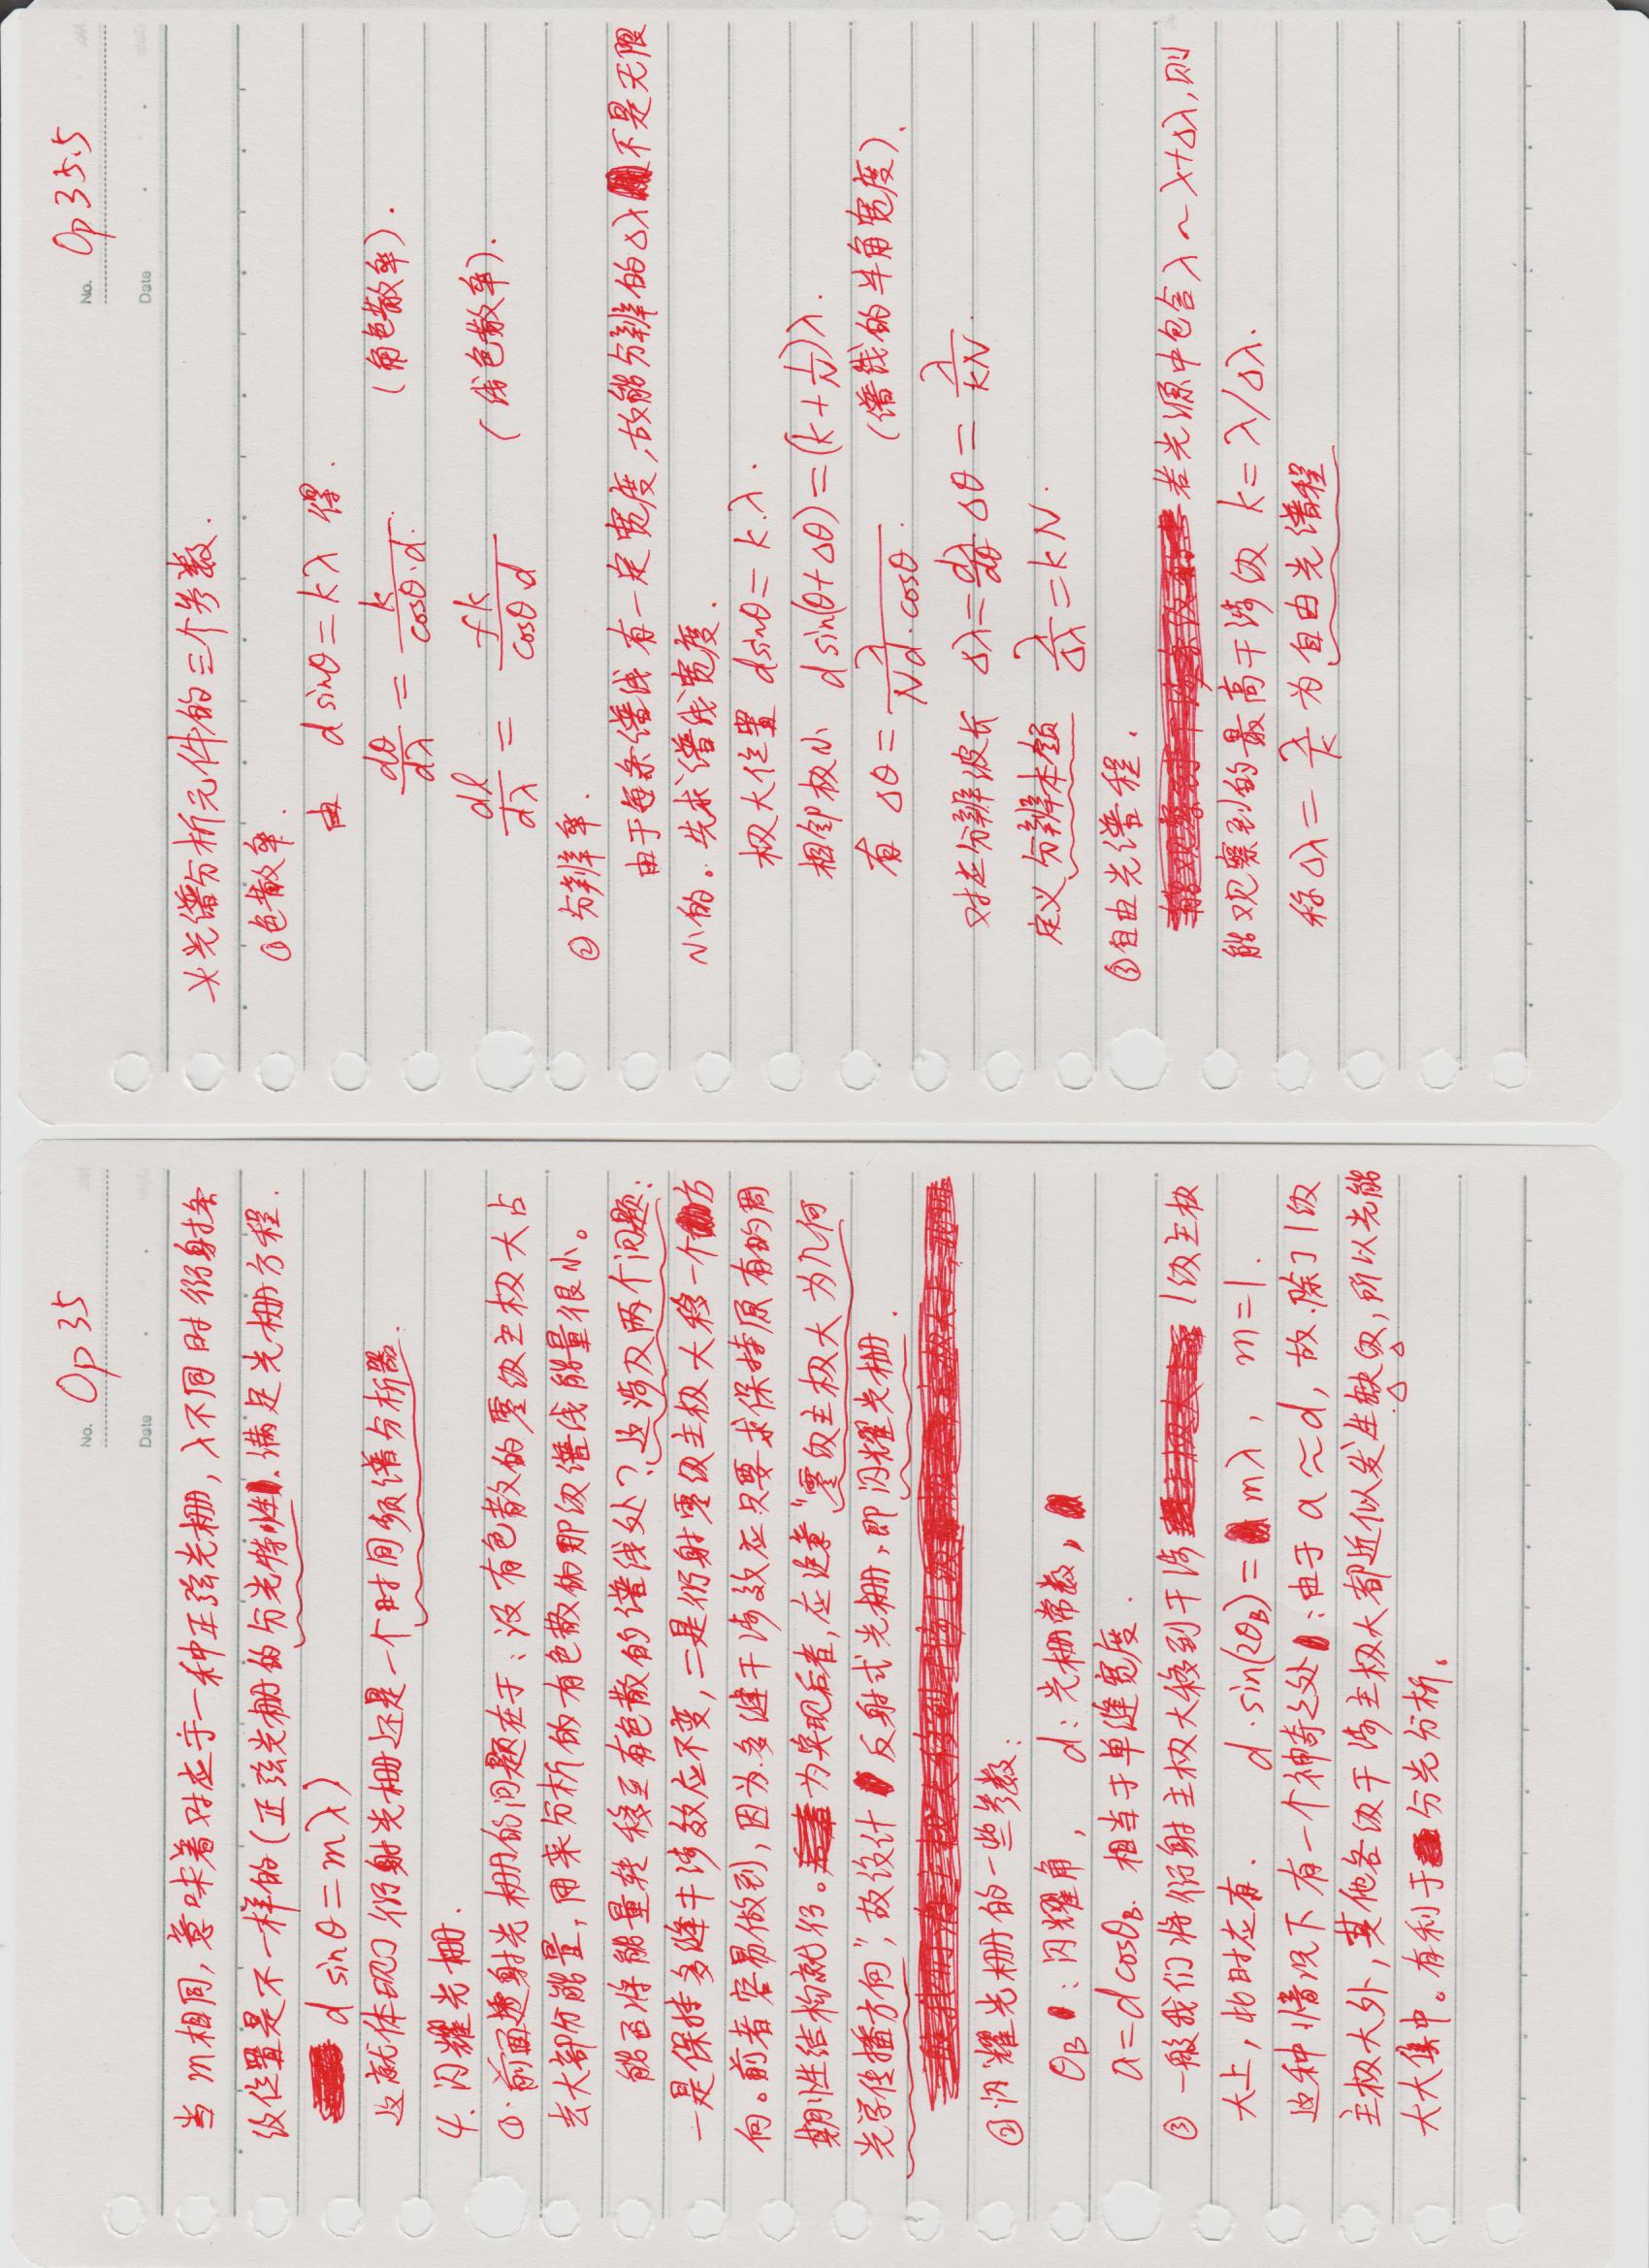 No. Op 35
Date
当 m 相同, 意味着对应于一种正弦光栅, λ不同时衍射条
纹位置是不一样的 (正弦光栅的分光特性. 满足光栅方程.
d sinθ = mλ)
这就体现了衍射光栅还是一个时间频谱分析器.
4. 闪耀光栅.
①. 前面透射光栅的问题在于: 没有色散的零级主极大占
去大部分能量, 用来分析的有色散的那级谱线能量很小。
能否将能量转移至有色散的谱线处? 这涉及两个问题:
一是保持多缝干涉效应不变, 二是衍射零级主极大移一个方
向。前者容易做到, 因为多缝干涉效应只要求保持原有的周
期性结构就行。为实现后者, 应注意“零级主极大为几何
光学传播方向”, 故设计反射式光栅, 即闪耀光栅.
②闪耀光栅的一些参数:
θB : 闪耀角, d: 光栅常数,
a = d cosθB. 相当于单缝宽度.
③ 一般我们将衍射主极大移到干涉 1级主极
大上, 此时应有. d · sin(2θB) = mλ, m=1.
这种情况下有一个神奇之处: 由于 a ≈ d, 故.除了1级
主极大外, 其他各级干涉主极大都近似发生缺级, 所以光能
大大集中。有利于分光分析。
No. Op 35.5
Date
光谱分析元件的三个参数.
①色散率.
由 d sinθ = kλ 得.
dθ/dλ = k/(cosθ·d) (角色散率).
dl/dλ = fk/(cosθ·d) (线色散率).
② 分辨率.
由于每条谱线有一定宽度, 故能分辨的Δλ不是无限
小的。先求谱线宽度.
极大位置 dsinθ = k.λ.
相邻极小 d sin(θ+Δθ) = (k + 1/N)λ.
有 Δθ = λ/(Nd·cosθ) (谱线的半角宽度).
对应分辨波长 Δλ = dλ/dθ Δθ = λ/kN.
定义分辨本领 λ/Δλ = kN.
③自由光谱程.
若光源中包含λ ~ λ+Δλ, 则
能观察到的最高干涉级 k = λ/Δλ.
称 Δλ = λ/k 为自由光谱程